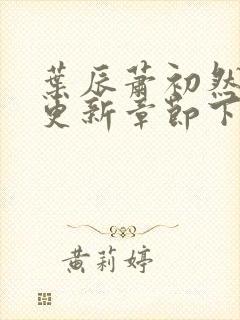 葉辰蕭初然
更新章節下
黃莉婷